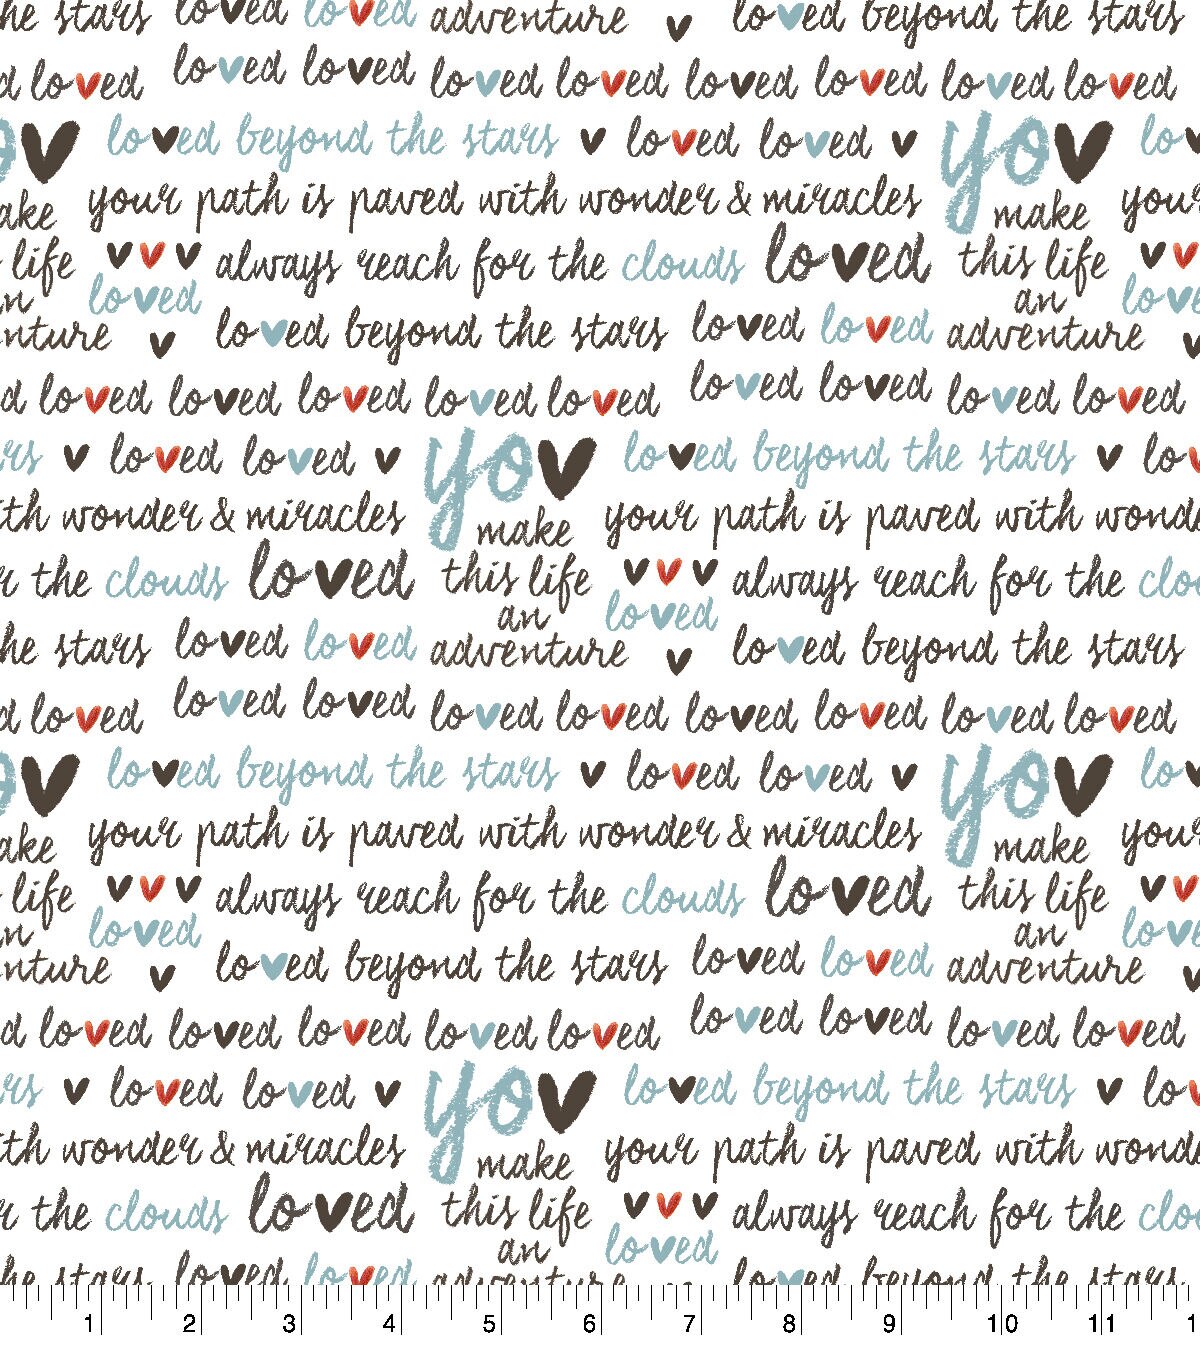 the stars loved loved adventure loved beyond the stars
loved loved loved loved loved loved loved loved loved
loved beyond the stars loved loved you
make your path is paved with wonder & miracles make your
life always reach for the clouds loved this life
loved an loved
adventure loved beyond the stars loved loved adventure
loved loved loved loved loved loved loved loved loved
stars loved loved you loved beyond the stars
with wonder & miracles make your path is paved with wonder
the clouds loved this life always reach for the clouds
an loved
the stars loved loved adventure loved beyond the stars
loved loved loved loved loved loved loved loved loved
loved beyond the stars loved loved you
make your path is paved with wonder & miracles make your
life always reach for the clouds loved this life
loved an loved
adventure loved beyond the stars loved loved adventure
loved loved loved loved loved loved loved loved loved
stars loved loved you loved beyond the stars
with wonder & miracles make your path is paved with wonder
the clouds loved this life always reach for the clouds
an loved
the stars loved loved adventure loved beyond the stars
1 2 3 4 5 6 7 8 9 10 11